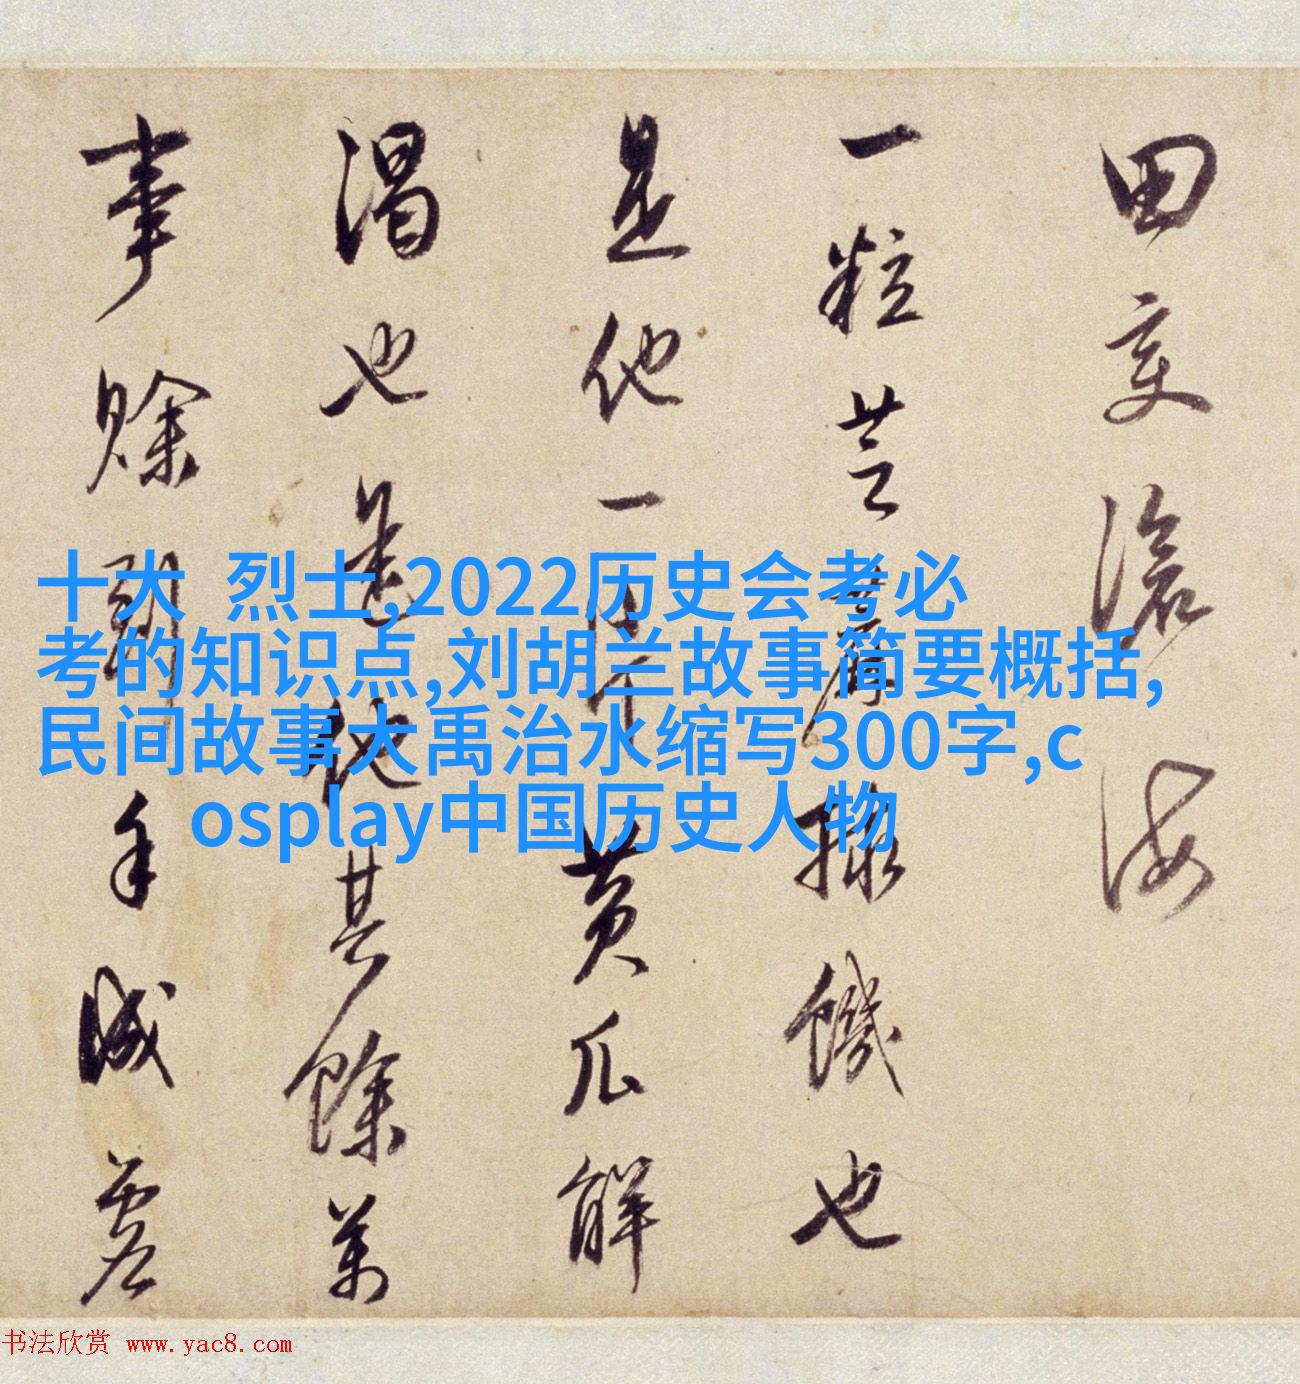 田变沧海
一粒芝麻救饥也
是他一片黄瓜解
渴也是他其餘万
事赊到手减虚
十大 烈士,2022历史会考必
考的知识点,刘胡兰故事简要概括,
民间故事大禹治水缩写300字,c
osplay中国历史人物
书法欣赏 www.yac8.com